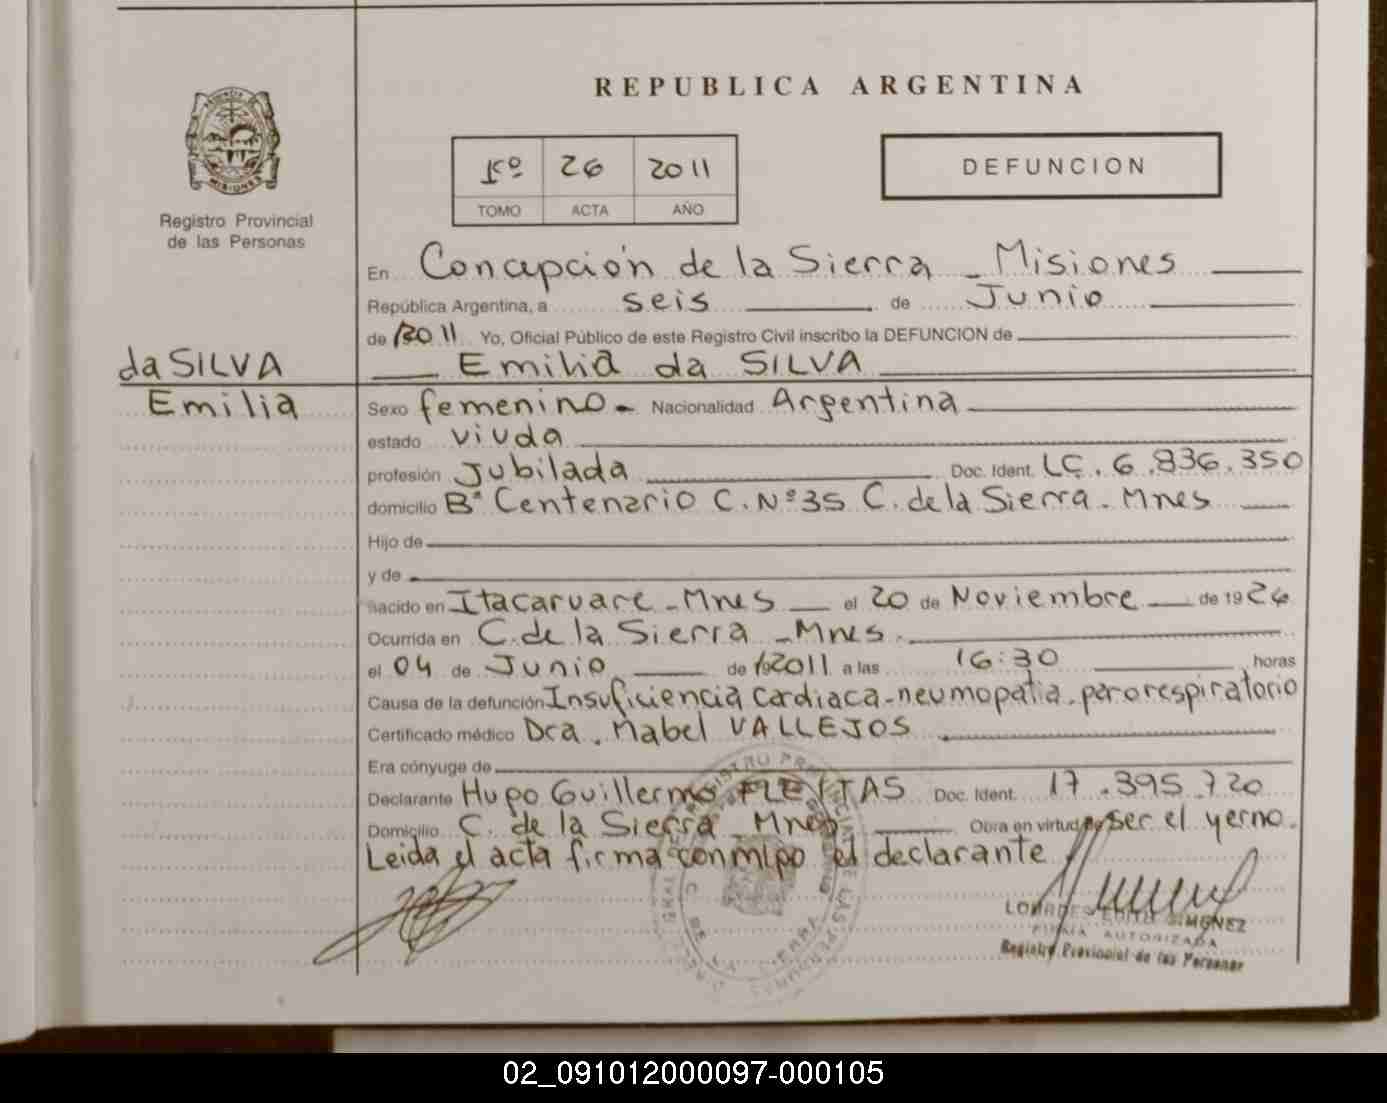 REPUBLICA ARGENTINA
1º 26 2011
TOMO ACTA AÑO
DEFUNCION
Registro Provincial
de las Personas
En Concepción de la Sierra - Misiones
República Argentina, a seis de Junio
de 2011 Yo, Oficial Público de este Registro Civil inscribo la DEFUNCION de
da SILVA
Emilia
Emilia da SILVA
Sexo femenino - Nacionalidad Argentina
estado viuda
profesión Jubilada Doc. Ident. LC. 6.836.350
domicilio Bº Centenario C. Nº 35 C. de la Sierra - Mnes
Hijo de
y de
nacido en Itacaruare - Mnes el 20 de Noviembre de 1926
Ocurrida en C. de la Sierra - Mnes.
el 04 de Junio de 2011 a las 16:30 horas
Causa de la defunción Insuficiencia cardiaca - neumopatia - parorespiratorio
Certificado médico Dra. Mabel VALLEJOS
Era cónyuge de
Declarante Hugo Guillermo FLEYTAS Doc. Ident. 17.395.720
Domicilio C. de la Sierra - Mnes Obra en virtud de ser el yerno.
Leida el acta firma conmigo el declarante
LOURDES EDITH GIMENEZ
FIRMA AUTORIZADA
Registro Provincial de las Personas
02_091012000097-000105